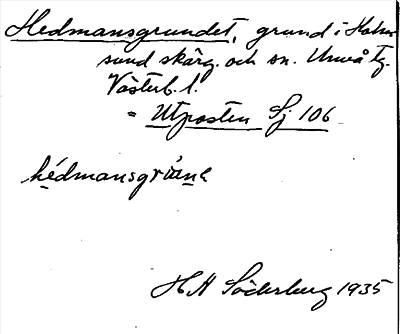 Hedmansgrundet, grund i Holm
sund skärg. och sn. Umeå tg.
Västerb. l.
= Utposten Sj 106
hédmansgrúnè
H H Söderberg 1935